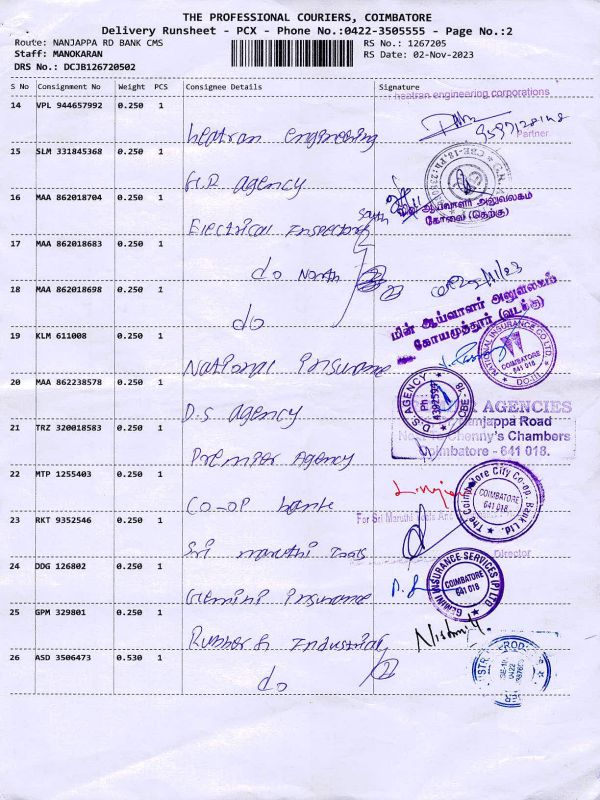 THE PROFESSIONAL COURIERS, COIMBATORE
Delivery Runsheet - PCX - Phone No.:0422-3505555 - Page No.:2
Route: NANJAPPA RD BANK CMS RS No.: 1267205
Staff: MANOKARAN RS Date: 02-Nov-2023
DRS No.: DCJB126720502
S No Consignment No Weight PCS Consignee Details Signature
heatran engineering corporations
14 VPL 944657992 0.250 1
heatran engineering
Partner
15 SLM 331845368 0.250 1
H.R agency
16 MAA 862018704 0.250 1
Electrical Inspector South
மின் ஆய்வாளர் அலுவலகம்
கோவை (தெற்கு)
17 MAA 862018683 0.250 1
do North
18 MAA 862018698 0.250 1
do
மின் ஆய்வாளர் அலுவலகம்
கோயமுத்தூர் (வடக்கு)
19 KLM 611008 0.250 1
National Insurance
NATIONAL INSURANCE CO.LTD.
COIMBATORE
641 018
20 MAA 862238578 0.250 1
D.S agency
D.S. AGENCY
CBE - 18
AGENCIES
21 TRZ 320018583 0.250 1
Nanjappa Road
Chambers
Coimbatore - 641 018.
Premier Agency
22 MTP 1255403 0.250 1
CO-OP bank
The Coimbatore City Co-op. Bank Ltd.
COIMBATORE
641 018
23 RKT 9352546 0.250 1
For Sri Maruthi Tools
Sri maruthi Tools
Director
24 DDG 126802 0.250 1
Gemini Insurance
GEMINI INSURANCE SERVICES (P) LTD
COIMBATORE
641 018
25 GPM 329801 0.250 1
Rubber & Industrial
26 ASD 3506473 0.530 1
do
0422